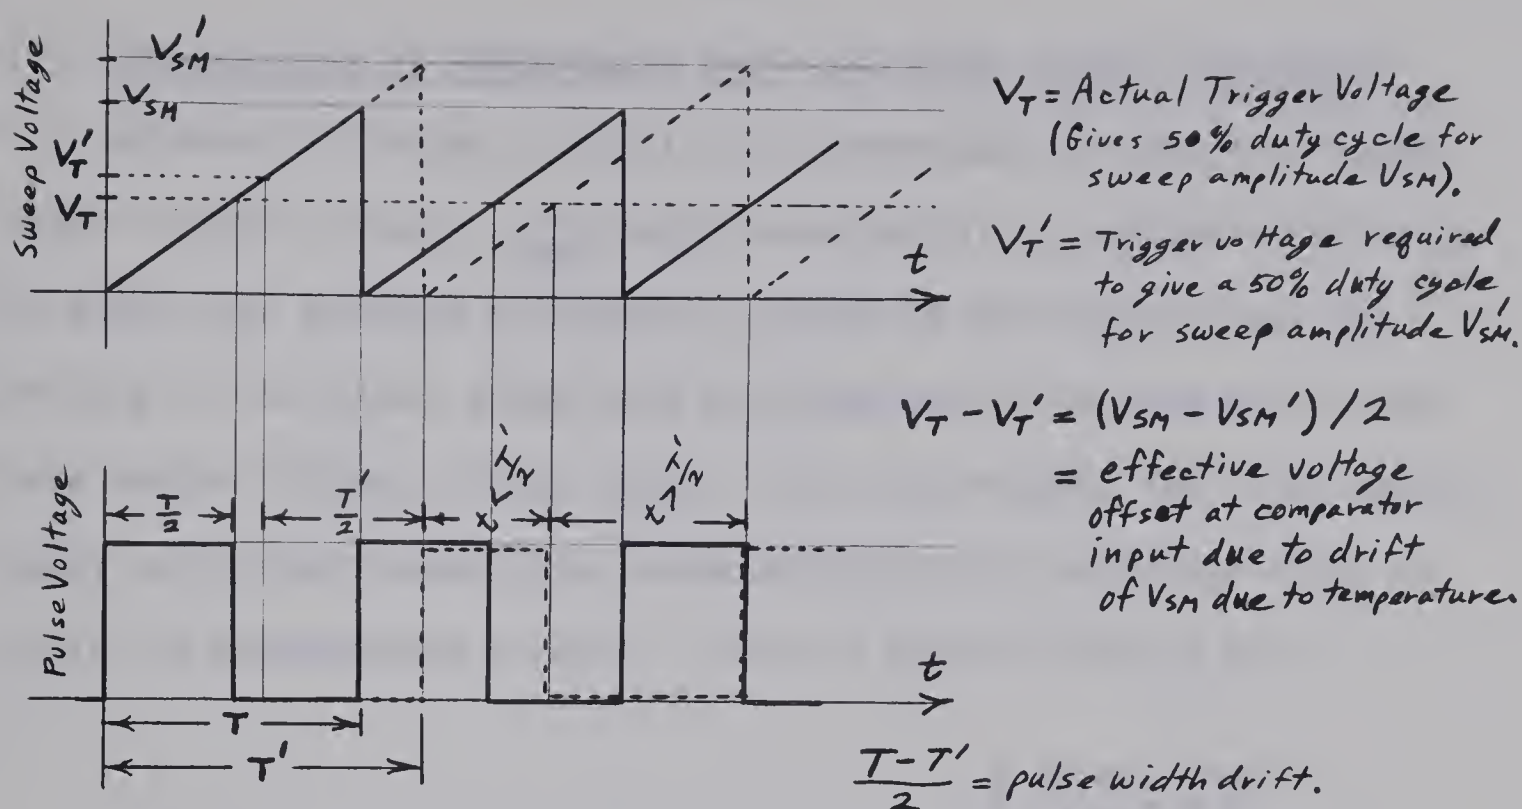 Sweep Voltage
V_SM'
V_SM
V_T'
V_T
t
V_T = Actual Trigger Voltage
(Gives 50% duty cycle for
sweep amplitude V_SM).
V_T' = Trigger voltage required
to give a 50% duty cycle
for sweep amplitude V_SM'.
V_T - V_T' = (V_SM - V_SM') / 2
= effective voltage
offset at comparator
input due to drift
of V_SM due to temperature.
Pulse Voltage
T/2
T'/2
t
T
T'
(T - T')/2 = pulse width drift.